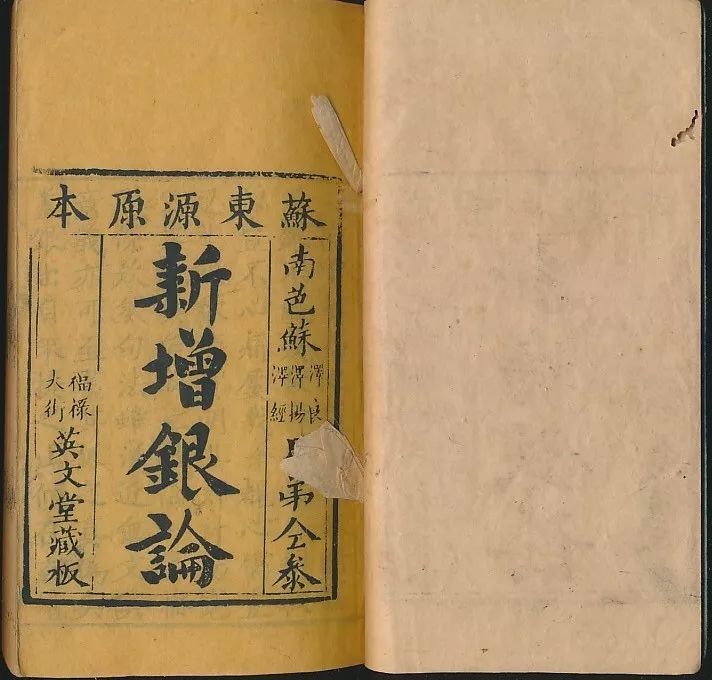 蘇東源原本
南邑蘇
澤良
澤揚
澤經
弟仝參
新增銀論
福祿
大街
英文堂藏板